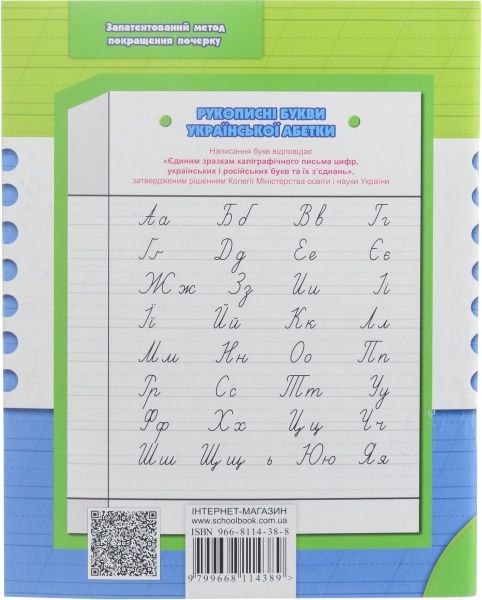 Запатентований метод
покращення почерку
РУКОПИСНІ БУКВИ
УКРАЇНСЬКОЇ АБЕТКИ
Написання букв відповідає
«Єдиним зразкам каліграфічного письма цифр,
українських і російських букв та їх з'єднань»,
затвердженим рішенням Колегії Міністерства освіти і науки України
Аа Бб Вв Гг
Ґґ Дд Ее Єє
Жж Зз Ии Іі
Її Йй Кк Лл
Мм Нн Оо Пп
Рр Сс Тт Уу
Фф Хх Цц Чч
Шш Щщ ь Юю Яя
ІНТЕРНЕТ-МАГАЗИН
www.schoolbook.com.ua
ISBN 966-8114-38-8
9 799668 114389 >